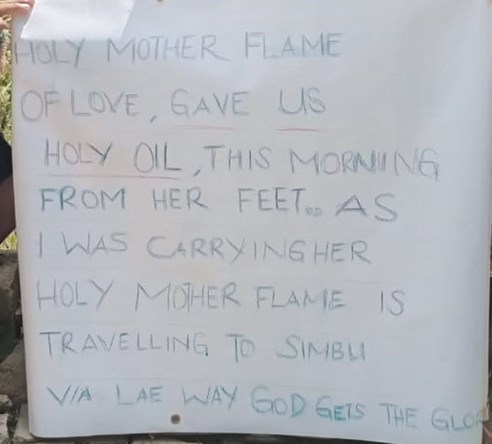 HOLY MOTHER FLAME
OF LOVE, GAVE US
HOLY OIL, THIS MORNING
FROM HER FEET.. AS
I WAS CARRYING HER
HOLY MOTHER FLAME IS
TRAVELLING TO SIMBU
VIA LAE WAY GOD GETS THE